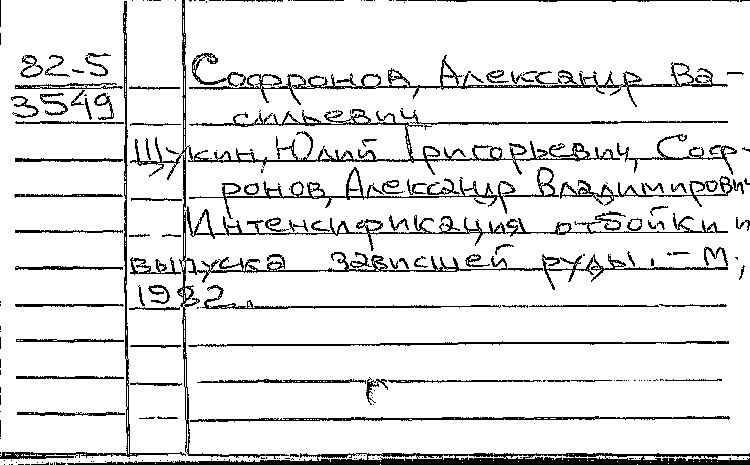 82-5 Софронов, Александр Ва-
3549 сильевич
Щукин, Юлий Григорьевич, Соф-
ронов, Александр Владимирович
Интенсификация отбойки и
выпуска зависшей руды. - М.,
1982.